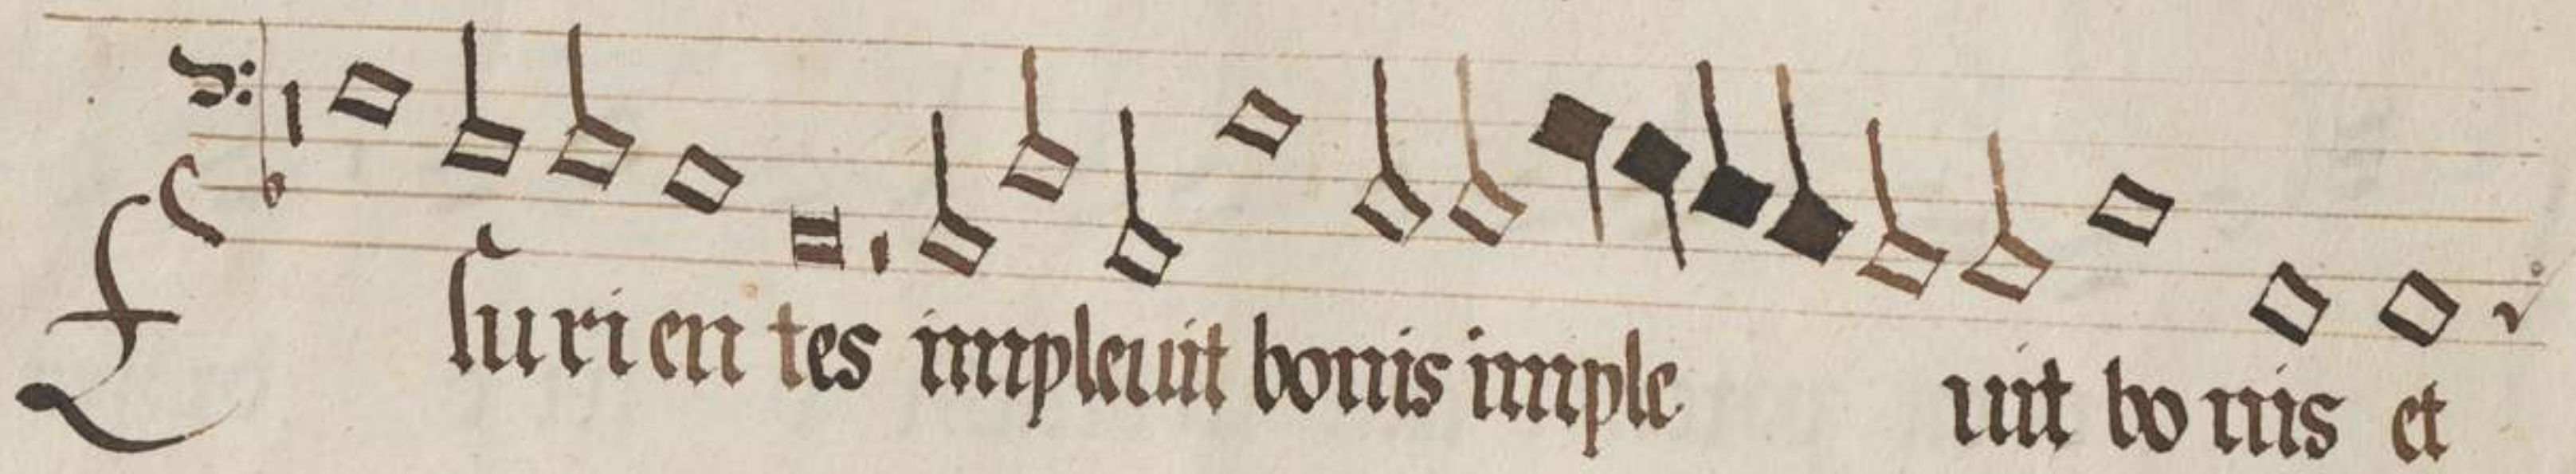 Esurientes impleuit bonis imple uit bonis et